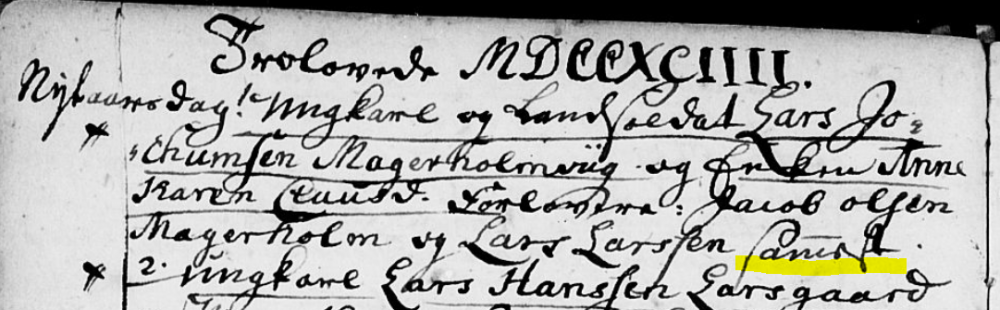 Trolovede MDCCXCIIII.
Nyt aarsdag! 1. Ungkarl og Landsoldat Lars Jo=
=chumsen Magerholmviig og Enken Anne
Karen Clausd. Forlovere: Jacob olsen
Magerholm og Lars Larssen samest.
2. Ungkarl Lars Hanssen Larsgaard